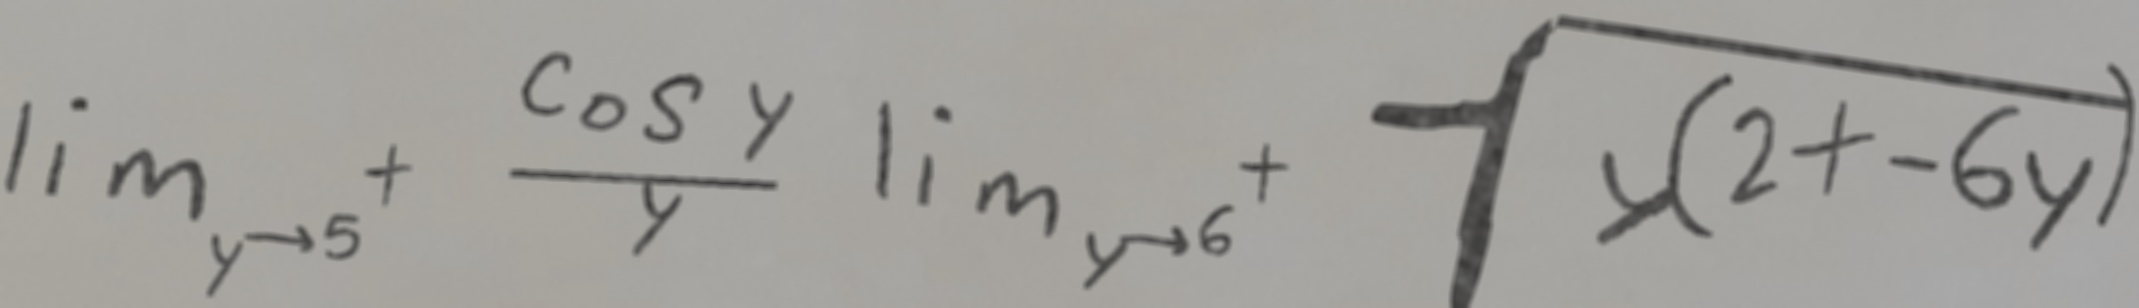 lim_{y→5^+} \frac{cos y}{y} lim_{y→6^+} \sqrt{y(2+-6y)}